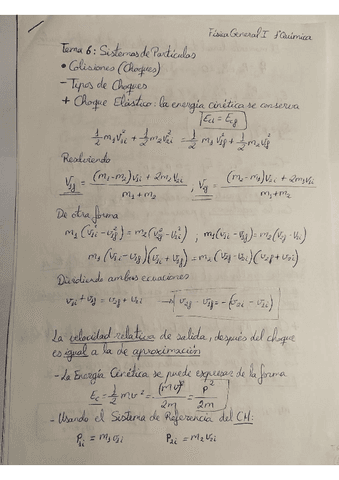 Física General I 1º Química
Tema 6: Sistemas de Partículas
• Colisiones (Choques)
- Tipos de Choques
+ Choque Elástico: la energía cinética se conserva
Eci = Ecf
1/2 m₁v₁i² + 1/2 m₂v₂i² = 1/2 m₁v₁f² + 1/2 m₂v₂f²
Resolviendo
V₁f = (m₁-m₂)v₁i + 2m₂v₂i / m₁+m₂ , V₂f = (m₂-m₁)v₂i + 2m₁v₁i / m₁+m₂
De otra forma
m₁(v₁i² - v₁f²) = m₂(v₂f² - v₂i²) ; m₁(v₁i - v₁f) = m₂(v₂f - v₂i)
m₁(v₁i - v₁f)(v₁i + v₁f) = m₂(v₂f - v₂i)(v₂f + v₂i)
Dividiendo ambas ecuaciones
v₁i + v₁f = v₂f + v₂i → v₂f - v₁f = -(v₂i - v₁i)
La velocidad relativa de salida, después del choque
es igual a la de aproximación
- La Energía Cinética se puede expresar de la forma
Ec = 1/2 m v² = (mv)²/2m = p²/2m
- Usando el Sistema de Referencia del CM:
P₁i = m₁v₁i P₂i = m₂v₂i